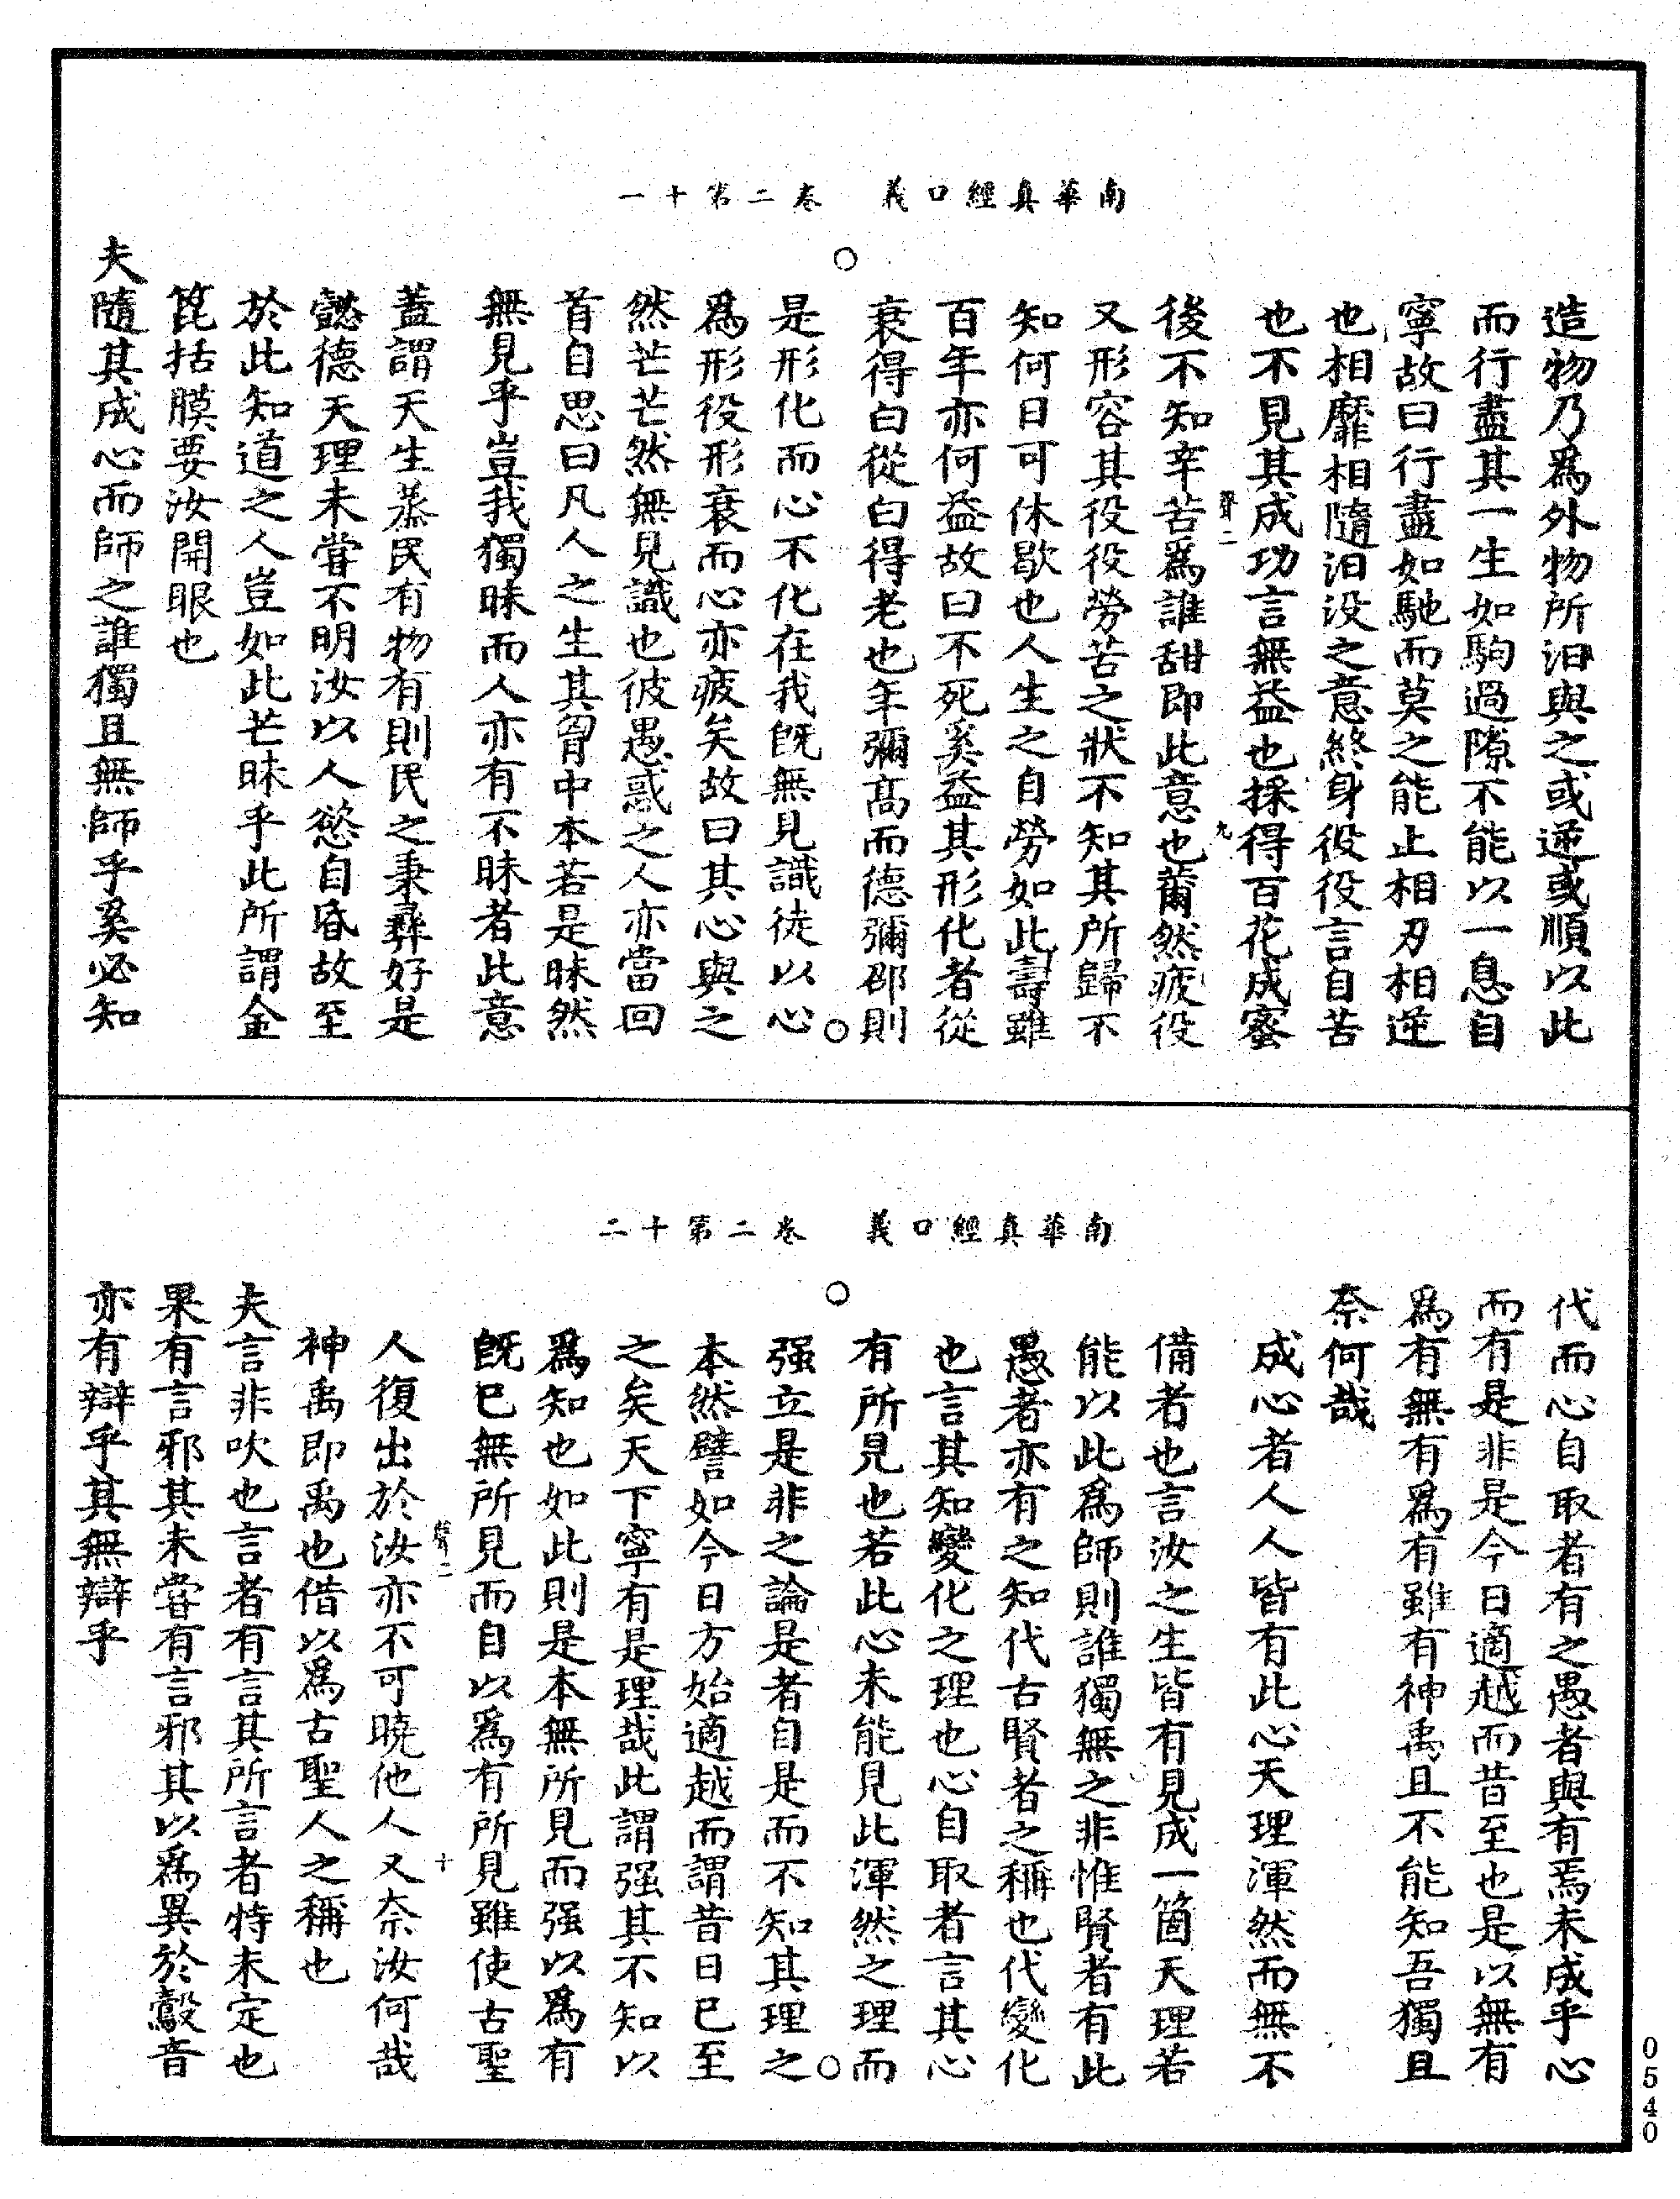 南華真經口義　卷二第十一
造物乃爲外物所汨與之或逆或順以此
而行盡其一生如駒過隙不能以一息自
寧故曰行盡如馳而莫之能止相刃相逆
也相靡相隨汨没之意終身役役言自苦
也不見其成功言無益也採得百花成蜜
後不知辛苦爲誰甜即此意也薾然疲役
又形容其役役勞苦之狀不知其所歸不
知何日可休歇也人生之自勞如此壽雖
百年亦何益故曰不死奚益其形化者從
衰得白從白得老也年彌高而德彌邵則
是形化而心不化在我既無見識徒以心
爲形役形衰而心亦疲矣故曰其心與之
然芒芒然無見識也彼愚惑之人亦當回
首自思曰凡人之生其胷中本若是昧然
無見乎豈我獨昧而人亦有不昧者此意
蓋謂天生蒸民有物有則民之秉彝好是
懿德天理未嘗不明汝以人慾自昏故至
於此知道之人豈如此芒昧乎此所謂金
篦括膜要汝開眼也
夫隨其成心而師之誰獨且無師乎奚必知
南華真經口義　卷二第十二
代而心自取者有之愚者與有焉未成乎心
而有是非是今日適越而昔至也是以無有
爲有無有爲有雖有神禹且不能知吾獨且
奈何哉
成心者人人皆有此心天理渾然而無不
備者也言汝之生皆有見成一箇天理若
能以此爲師則誰獨無之非惟賢者有此
愚者亦有之知代古賢者之稱也代變化
也言其知變化之理也心自取者言其心
有所見也若此心未能見此渾然之理而
强立是非之論是者自是而不知其理之
本然譬如今日方始適越而謂昔日已至
之矣天下寧有是理哉此謂强其不知以
爲知也如此則是本無所見而强以爲有
既已無所見而自以爲有所見雖使古聖
人復出於汝亦不可曉他人又奈汝何哉
神禹即禹也借以爲古聖人之稱也
夫言非吹也言者有言其所言者特未定也
果有言邪其未嘗有言邪其以爲異於鷇音
亦有辯乎其無辯乎
0540